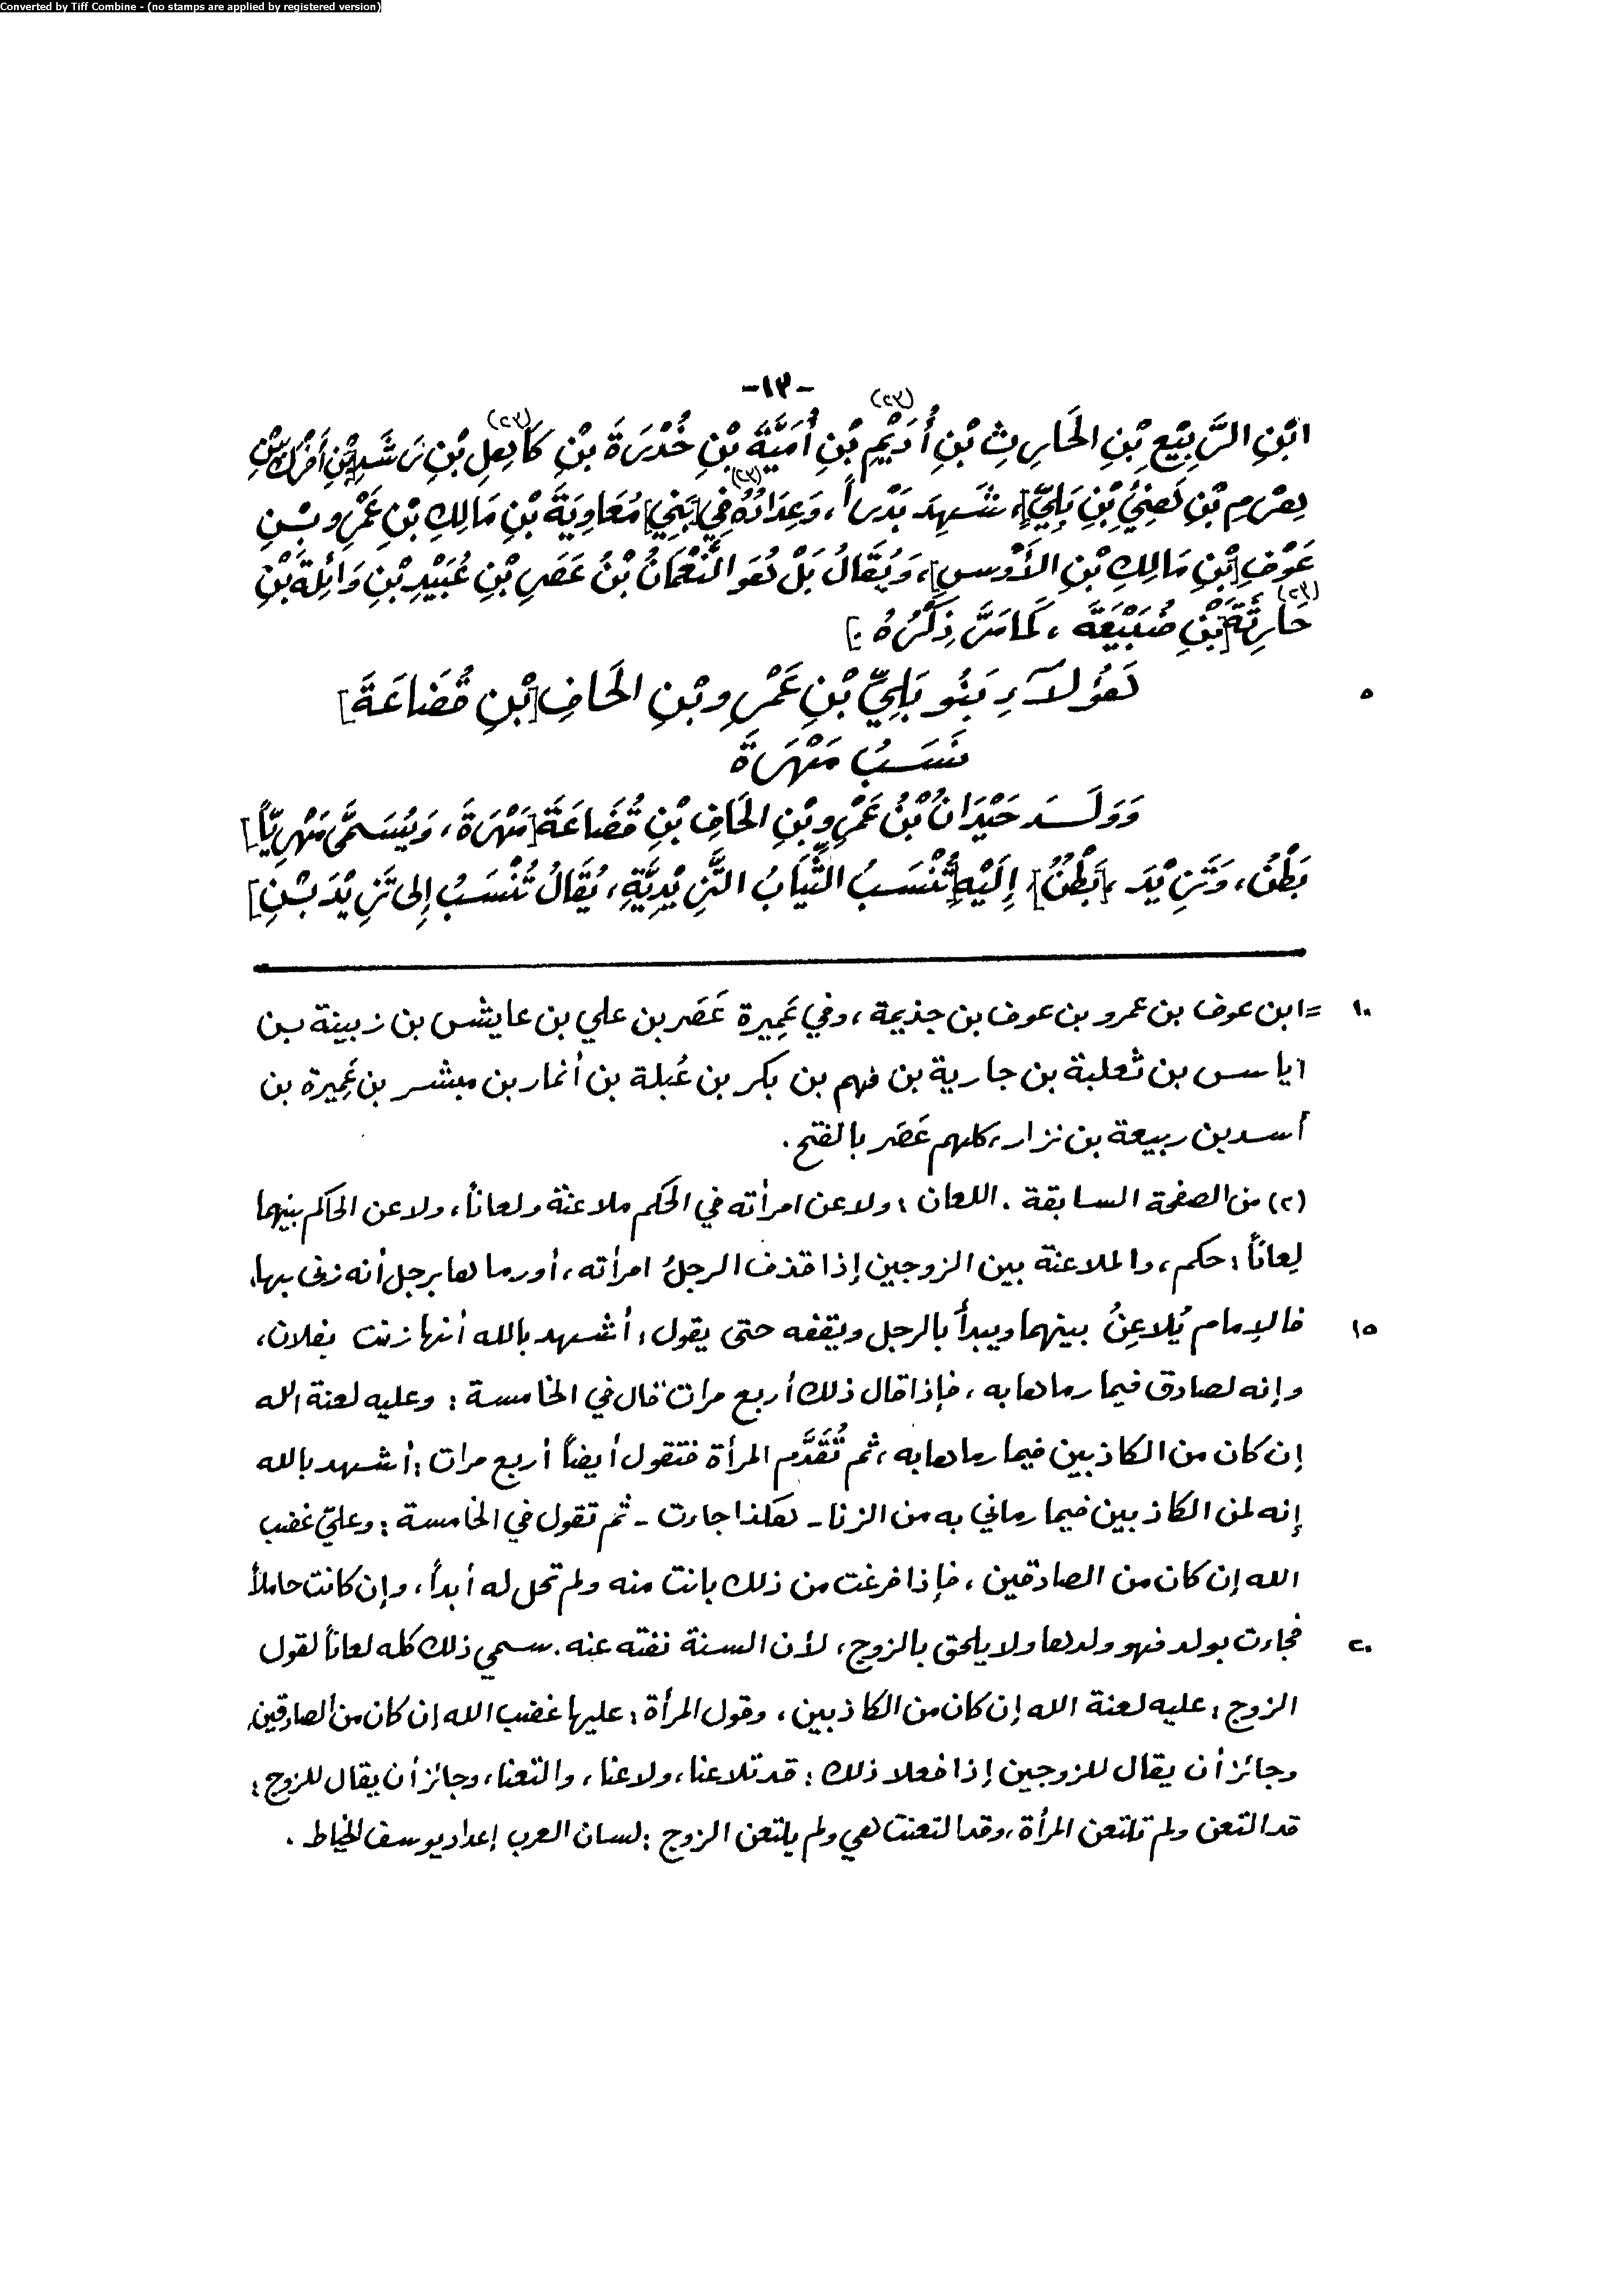 Converted by Tiff Combine - (no stamps are applied by registered version)
-١٣-
(٢٣) (٢٣)
ابْنِ الرَّبِيْعِ بْنِ الحَارِثِ بْنِ أُدَيْمِ بْنِ أُمَيَّةَ بْنِ خُدْرَةَ بْنِ كَاهِلِ بْنِ رَشَدِ بْنِ أَفْرَكَ بْنِ
هِرْمِ بْنِ هَنِيْءِ بْنِ بَلِيّ]، شَهِدَ بَدْراً، وَعِدَادُهُ فِي [بَنِي] مُعَاوِيَةَ بْنِ مَالِكِ بْنِ عَمْرِو بْنِ
عَوْفِ [بْنِ مَالِكِ بْنِ الأَوْسِ]، وَيُقَالُ بَلْ هُوَ النُّعْمَانُ بْنُ عَصَرِ بْنِ عُبَيْدِ بْنِ وَائِلَةَ بْنِ
حَارِثَةَ [بْنِ ضُبَيْعَةَ، كَمَا مَرَّ ذِكْرُهُ.]
هَؤُلاَءِ بَنُو بَلِيِّ بْنِ عَمْرِو بْنِ الحَافِ [بْنِ قُضَاعَةَ]
٥
نَسَبُ مَهْرَةَ
وَوَلَـدَ حَيْدَانُ بْنُ عَمْرِو بْنِ الحَافِ بْنِ قُضَاعَةَ [مَهْرَةَ، وَيُسَمَّى مَهْرِيّاً]
بَطْنٌ، وَتَزِيْدَ، [بَطْنٌ]، إِلَيْهِ تُنْسَبُ الثِّيَابُ التَّزِيْدِيَّةِ، يُقَالُ تُنْسَبُ إِلى تَزِيْدَ بْنِ]
١٠ =ابن عوف بن عمرو بن عوف بن جذيمة، وفي عَمِيرة عَصَر بن علي بن عايش بن زبينة بن
اياس بن ثعلبة بن جارية بن فهم بن بكر بن عُبلة بن أنمار بن مبشر بن عَمِيرة بن
أسد بن ربيعة بن نزار، كلهم عَصَر بالفتح.
(٢) من الصفحة السابقة. اللعان: ولاعن امرأته في الحكم ملاعنة ولعاناً، ولاعن الحاكم بينهما
لِعاناً: حكم، والملاعنة بين الزوجين إذا قذف الرجلُ امرأته، أو رماها برجل أنه زنى بها،
١٥ فالإمام يُلاعِنُ بينهما ويبدأ بالرجل ويقفه حتى يقول: أشهد بالله أنها زنت بفلان،
وإنه لصادق فيما رماها به، فإذا قال ذلك أربع مرات قال في الخامسة: وعليه لعنة الله
إن كان من الكاذبين فيما رماها به، ثم تُقَدَّم المرأة فتقول أيضاً أربع مرات: أشهد بالله
إنه لمن الكاذبين فيما رماني به من الزنا- هكذا جاءت - ثم تقول في الخامسة: وعليّ غضب
الله إن كان من الصادقين، فإذا فرغت من ذلك بانت منه ولم تحل له أبداً، وإن كانت حاملاً
٢٠ فجاءت بولد فهو ولدها ولا يلحق بالزوج، لأن السنة نفته عنه. سمي ذلك كله لعاناً لقول
الزوج: عليه لعنة الله إن كان من الكاذبين، وقول المرأة: عليها غضب الله إن كان من الصادقين.
وجائز أن يقال للزوجين إذا فعلا ذلك: قد تلاعنا، ولاعنا، والتعنا، وجائز أن يقال للزوج:
قد التعن ولم تلتعن المرأة، وقد التعنت هي ولم يلتعن الزوج: لسان العرب إعداد يوسف الخياط.